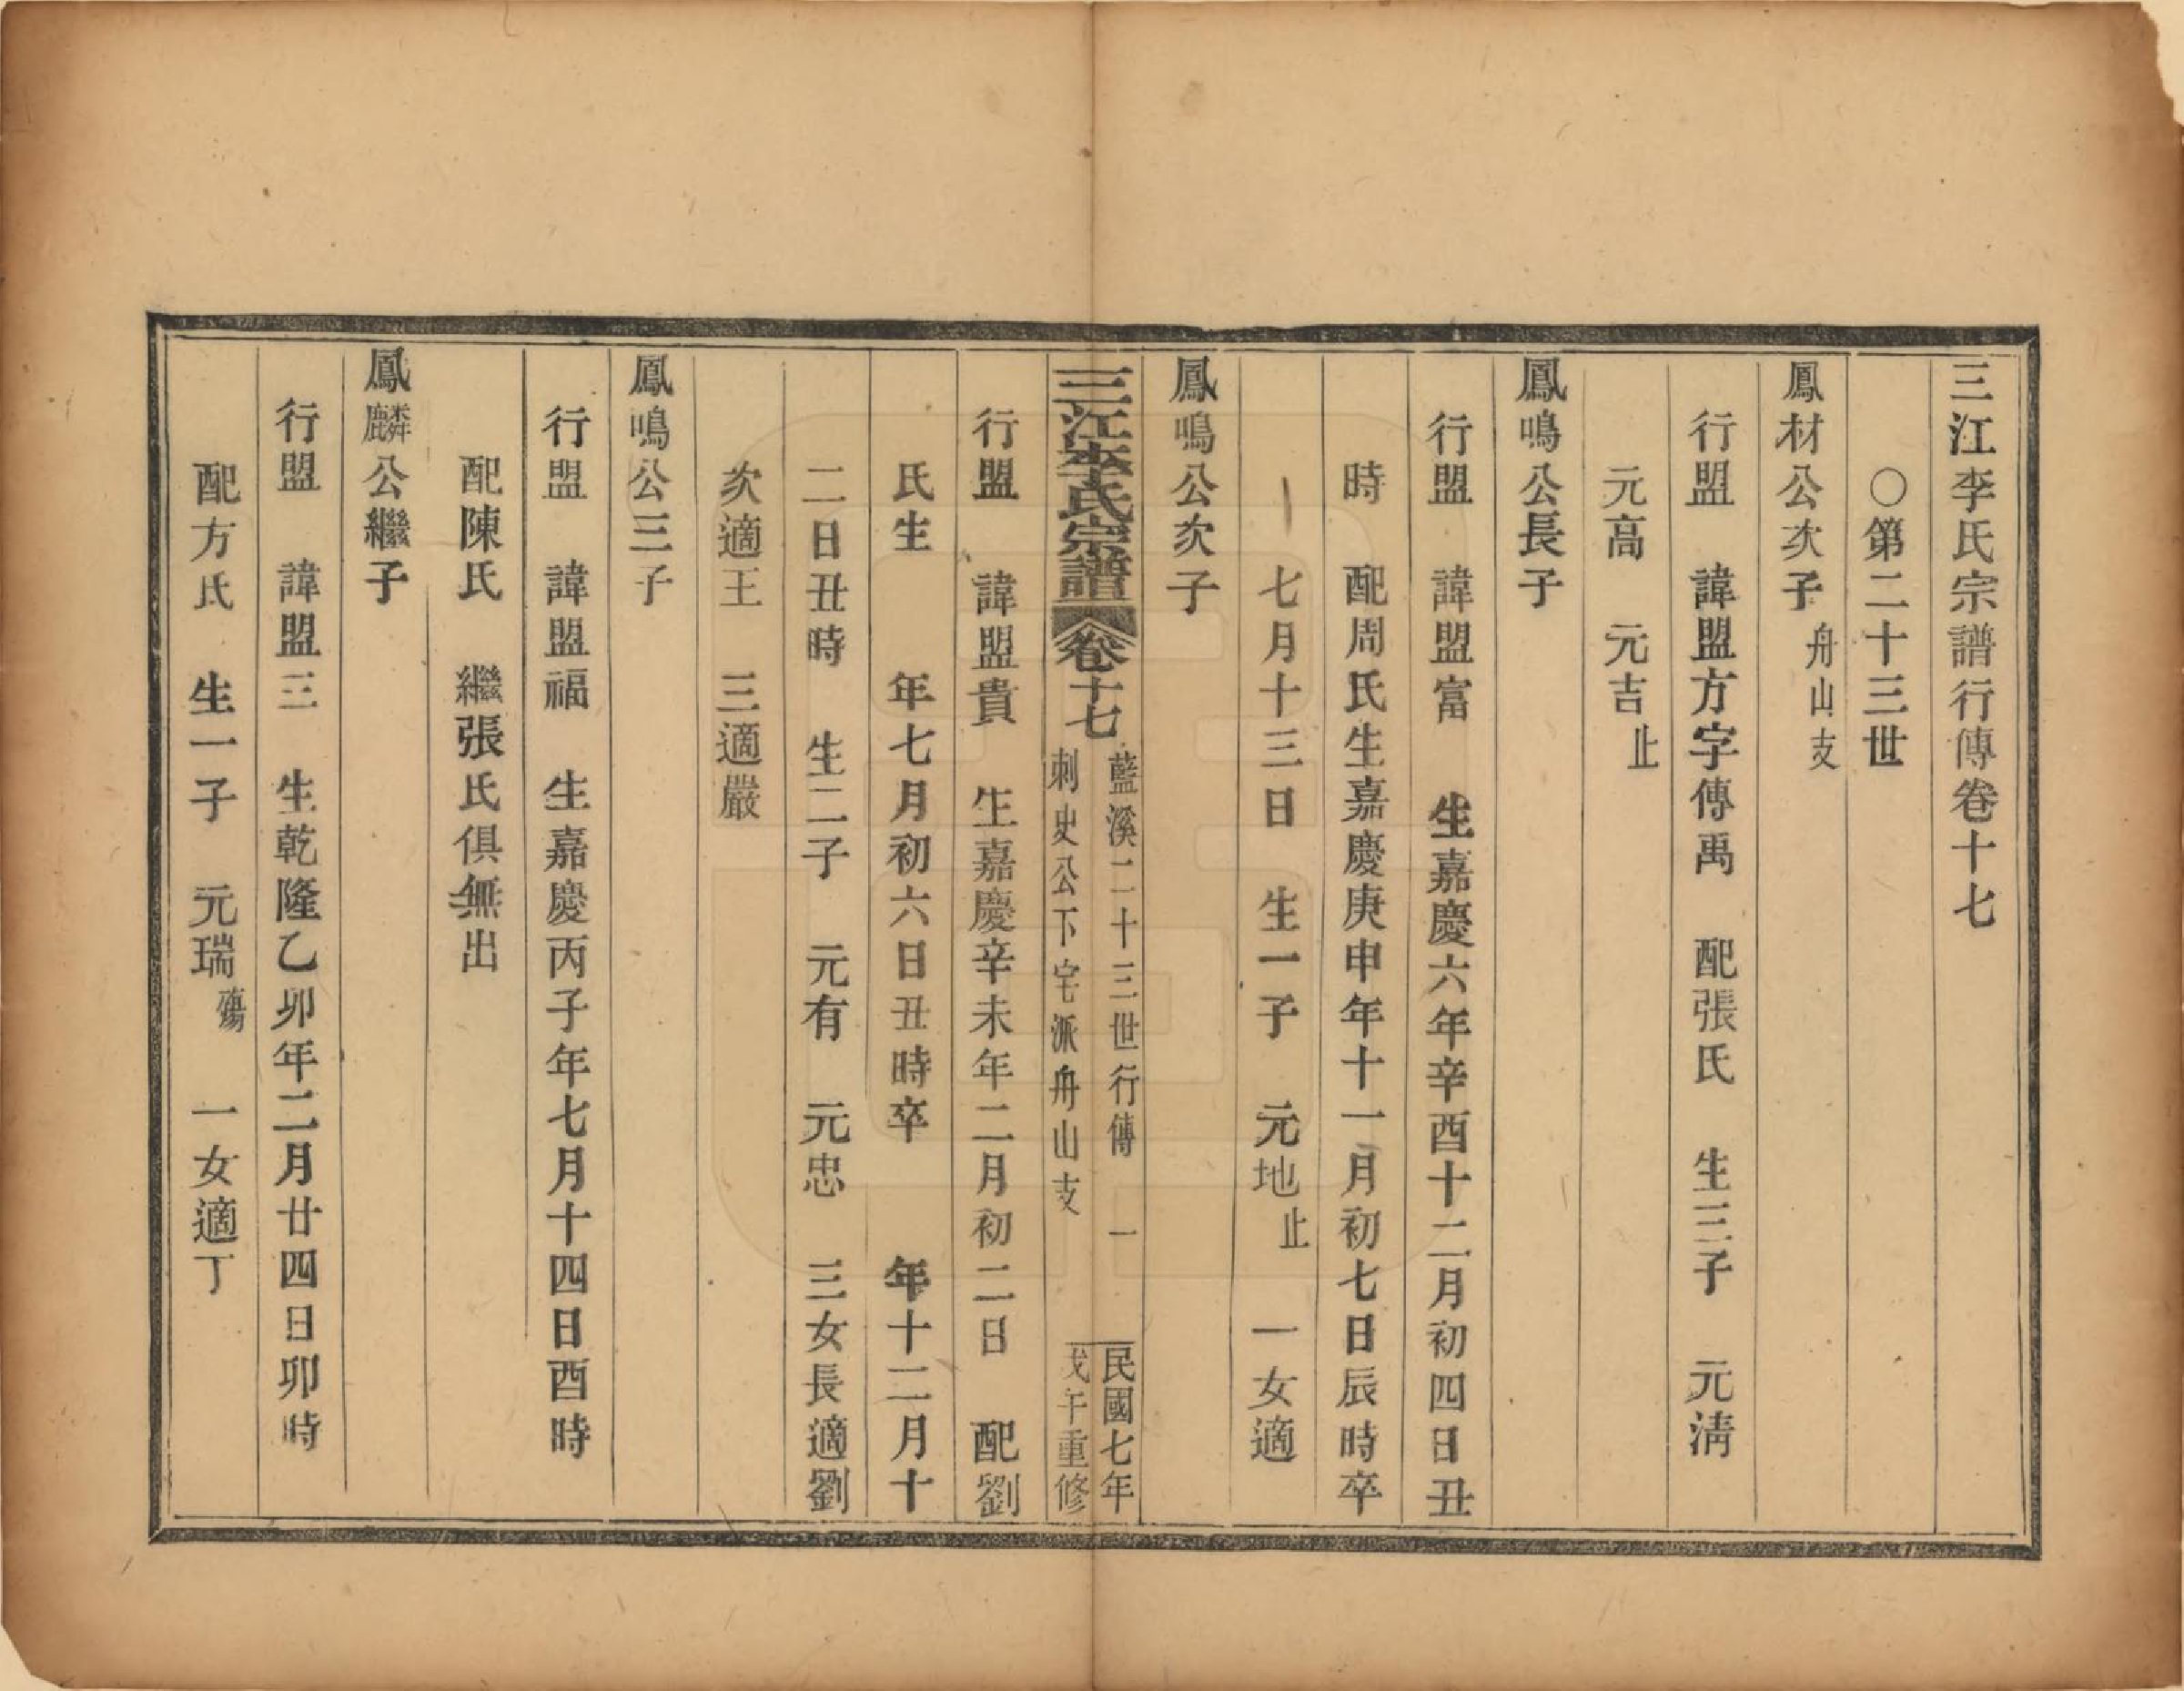 三江李氏宗譜行傳卷十七
○第二十三世
鳳材公次子 舟山支
行盟 諱盟方字傳禹 配張氏 生三子 元淸
元高 元吉 止
鳳鳴公長子
行盟 諱盟富 生嘉慶六年辛酉十二月初四日丑
時 配周氏生嘉慶庚申年十一月初七日辰時卒
七月十三日 生一子 元地 止 一女適
鳳鳴公次子
三江李氏宗譜 卷十七 藍溪二十三世行傳 一 民國七年
刺史公下宅派舟山支 戊午重修
行盟 諱盟貴 生嘉慶辛未年二月初二日 配劉
氏生 年七月初六日丑時卒 年十二月十
二日丑時 生二子 元有 元忠 三女長適劉
次適王 三適嚴
鳳鳴公三子
行盟 諱盟福 生嘉慶丙子年七月十四日酉時
配陳氏 繼張氏俱無出
鳳麟公繼子
行盟 諱盟三 生乾隆乙卯年二月廿四日卯時
配方氏 生一子 元瑞 殤 一女適丁